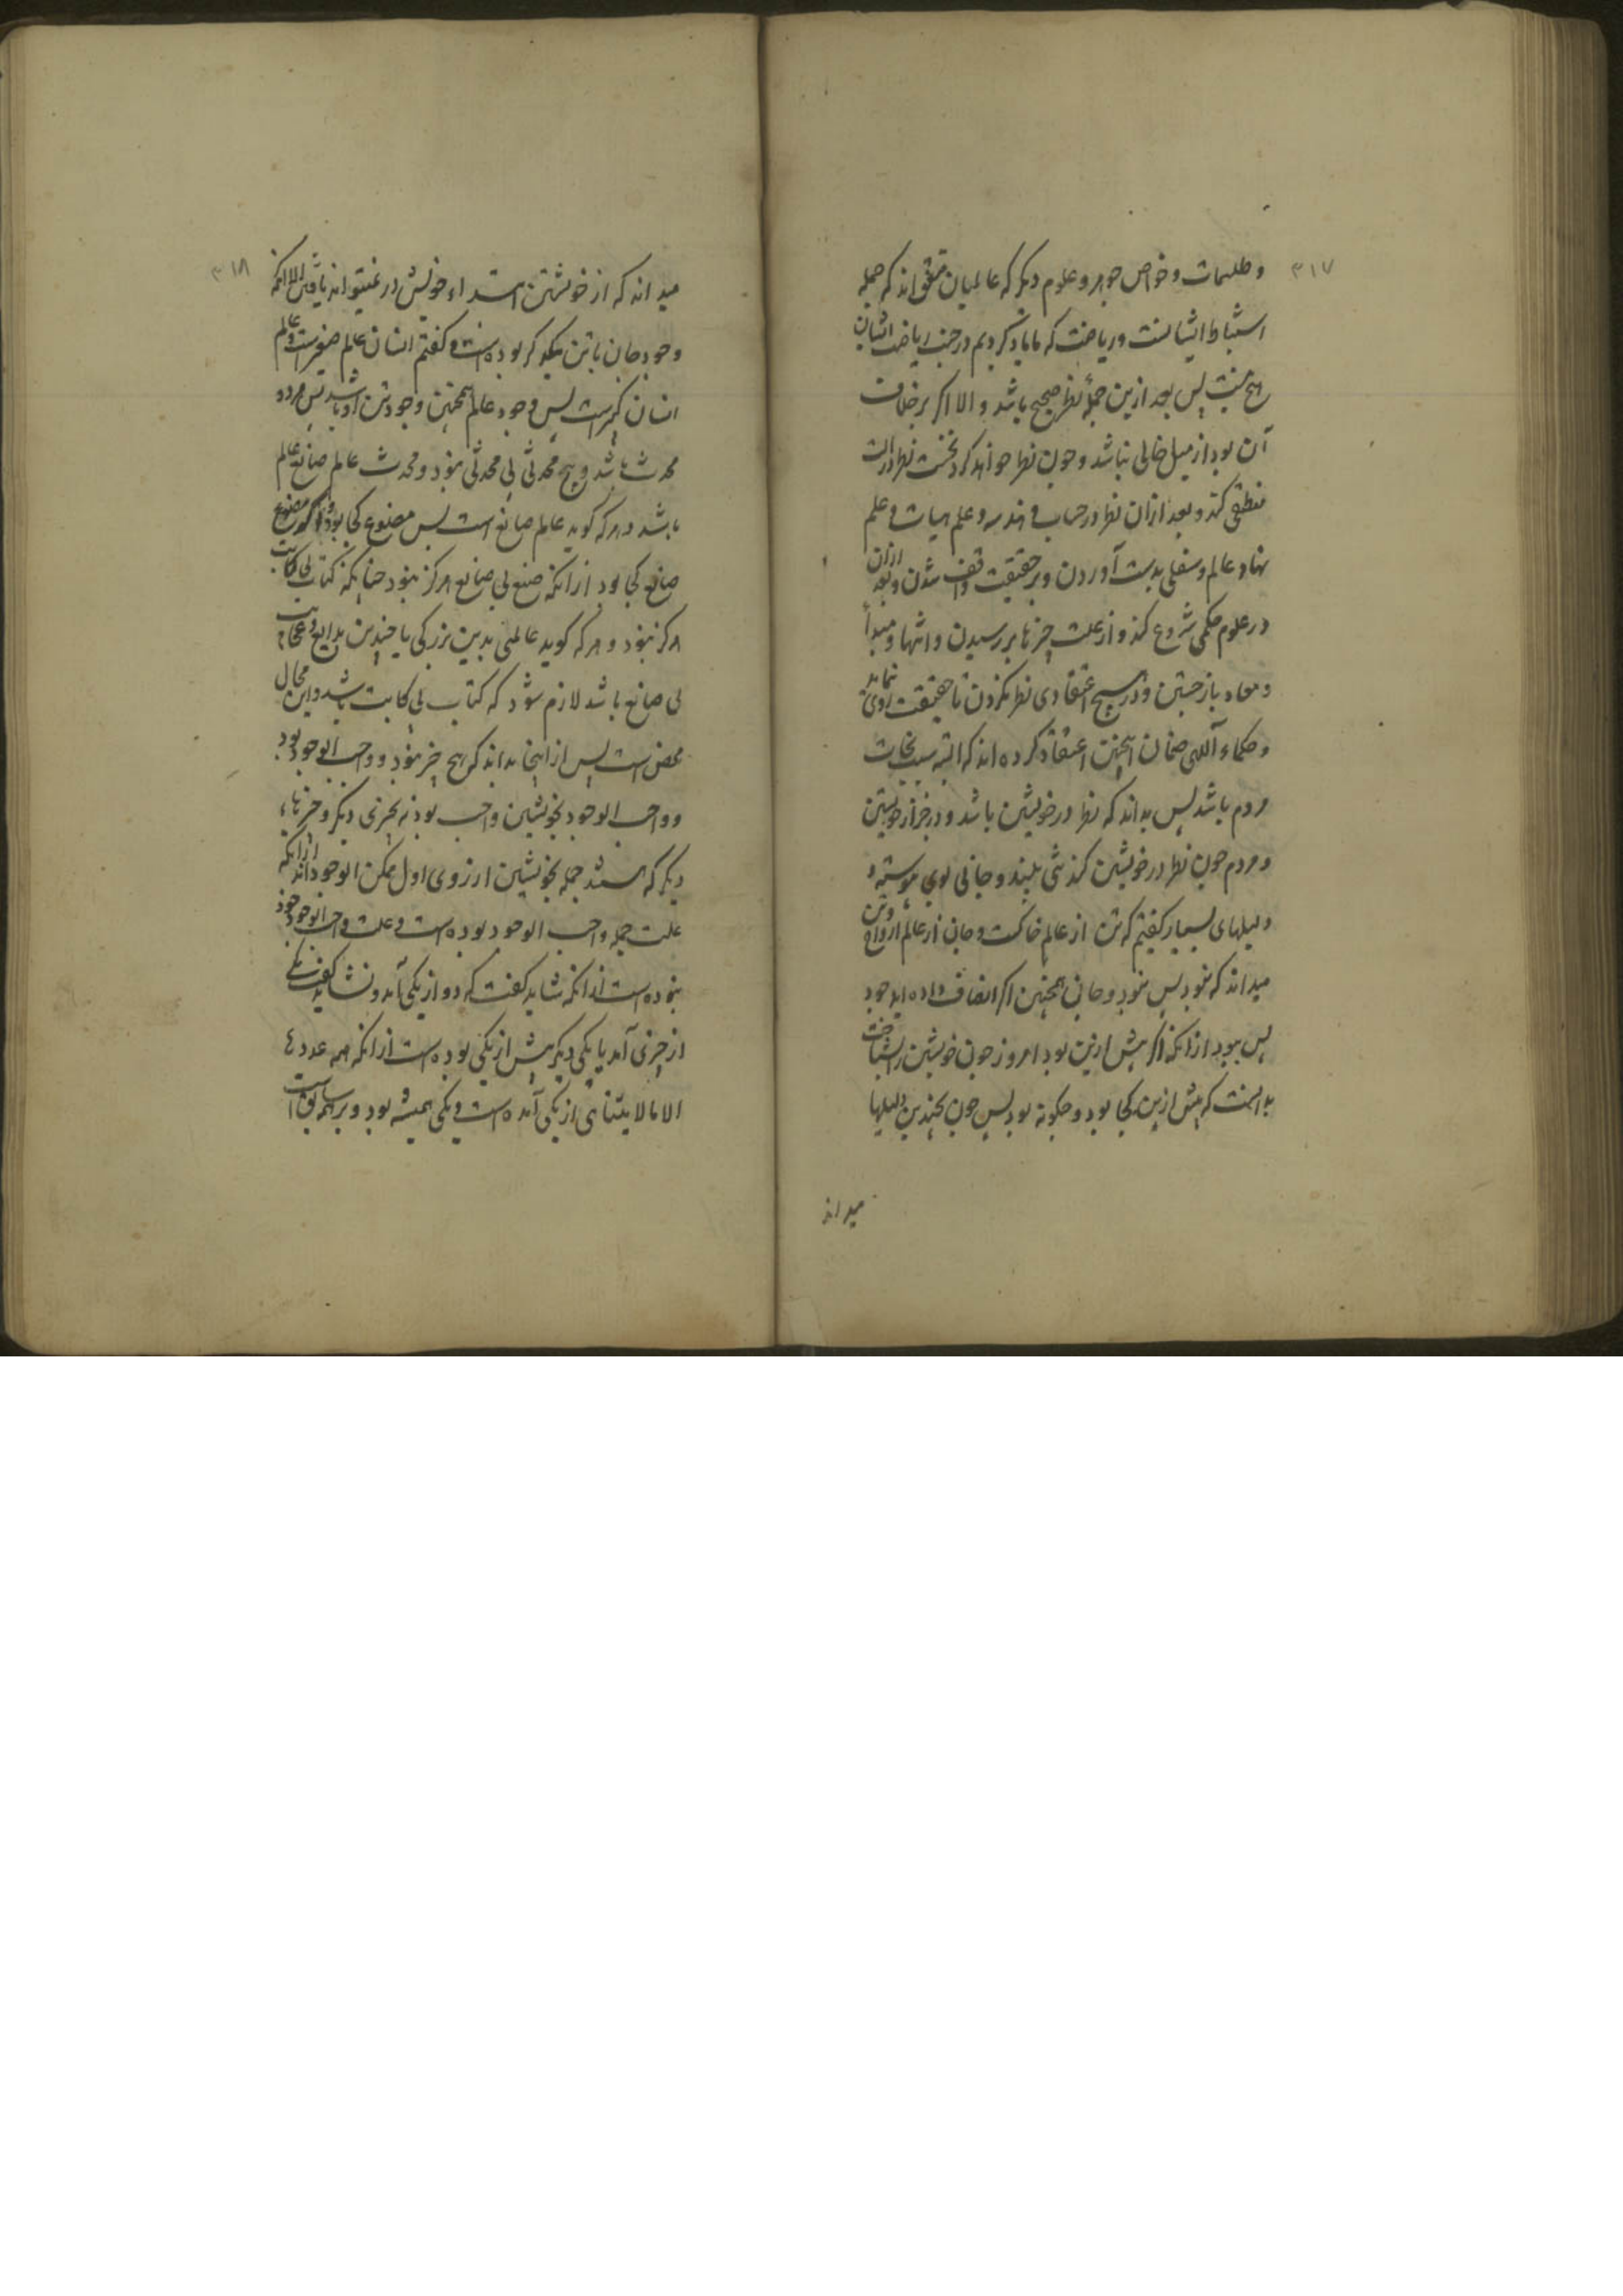 ۳۱۷
و طلسمات و خواص جوهر و علوم دیکر که عالمیان متفق‌اند که جمله
استنباط ایشانست و ریاضت که ما یاد کردیم در جنب ریاضت ایشان
هیچ نیست پس بعد ازین جمله نظر صحیح باشد و الا اکر برخلاف
آن بود از میل خالی نباشد و چون نظر خواهد کرد نخست نظر در آلت
منطقی کند و بعد ازان نظر در حساب و هندسه و علم هیات و علم
نهاد عالم و سفلی بدست آوردن و بر حقیقت واقف شدن و بعد ازان
در علوم حکمی شروع کند و از علت چیزها بررسیدن و انتها و مبدأ
و معاد باز جستن و در هیچ اعتقادی نظر نکردن تا حقیقت روی نماید
و حکماء آلهی چنان اعتقاد کرده‌اند که البته سبب نجات
مردم باشد پس بداند که نظر در خویشتن باشد و در جز از خویشتن
و مردم چون نظر در خویشتن کند تنی بیند و جانی بوی پیوسته و
دلیلهای بسیار کفتیم که تن از عالم خاکست و جان از عالم ارواح و تن
میداند که نبود پس نبود و جان همچنین اکر انصاف داده اید خود
پس نبود ازانکه اکر پیش ازین بود امروز چون خویشتن را شناخت
بدانست که پیش ازین کجا بود و چکونه بود پس چون بچندین دلیلها
میداند
۳۱۸
میداند که از خویشتن ابتداء خویش در نمیتواند یافتن الا آنکه
وجود جان با تن بیکدکر بوده است و کفتم انسان عالم صغیرست و عالم
انسان کبیرست پس وجود عالم همچنین وجود تن او باشد پس هر دو
محدث باشد و هیچ محدثی بی محدثی نبود و محدث عالم صانع عالم
باشد و هر که کوید عالم صانع است پس مصنوع کجا بود و اکر کوید مصنوع
صانع کجا بود ازانکه صنع بی صانع هرکز نبود چنانکه کتاب بی کاتب
هرکز نبود و هر که کوید عالمی بدین بزرکی با چندین بدایع و عجایب
بی صانع باشد لازم شود که کتاب بی کاتب باشد و این محال
محض است پس از اینجا بداند که هیچ چیز نبود و واجب الوجود بود
و واجب الوجود بخویشتن واجب بود نه بچیزی دیکر و چیزهاء
دیکر که هستند جمله بخویشتن از روی اول ممکن الوجوداند ازانکه
علت جمله واجب الوجود بوده است و علت واجب الوجود خود
نبوده است ازانکه نشاید کفت که دو از یکی آمد و نشاید کفت یکی
از چیزی آمد یا یکی دیکر پیش از یکی بوده است ازانکه همه عددها
الا ما لا یتناهی از یکی آمده است و یکی همیشه بود و بر همه سابق است